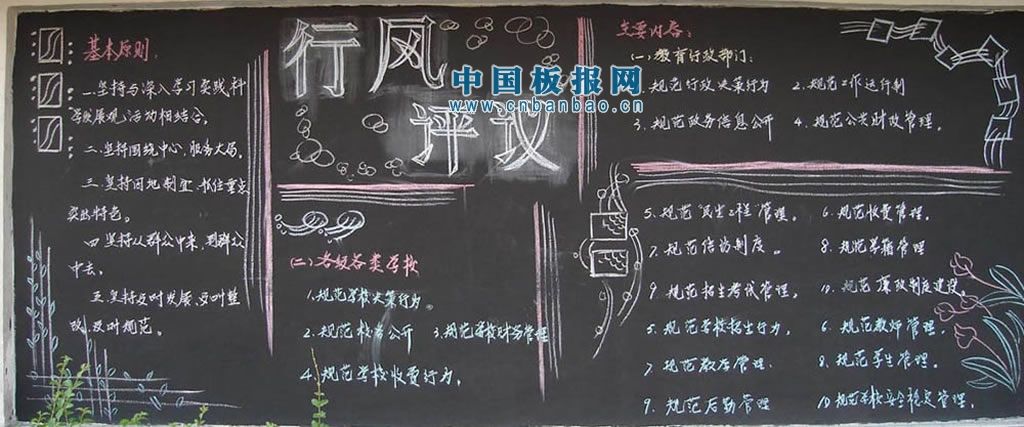 基本原则:
一.坚持与深入学习实践科
学发展观活动相结合。
二.坚持围绕中心,服务大局。
三.坚持因地制宜 抓住重点
突出特色。
四 坚持从群众中来 到群众
中去。
五.坚持及时发展、及时整
改、及时规范。
行风
评议
中国板报网
www.cnbanbao.cn
(二)各级各类学校
1.规范学校决策行为。
2.规范校务公开 3.规范学校财务管理
4.规范学校收费行为。
主要内容:
(一)教育行政部门:
规范行政决策行为 2.规范工作运行制
3.规范政务信息公开 4.规范公共财政管理。
5.规范民生工程管理。 6.规范收费管理。
7.规范信访制度。 8.规范学籍管理
9.规范招生考试管理。 10.规范廉政制度建设。
5.规范学校招生行为。 6.规范教师管理。
7.规范教学管理. 8.规范学生管理.
9.规范后勤管理 10.规范学校安全稳定管理.